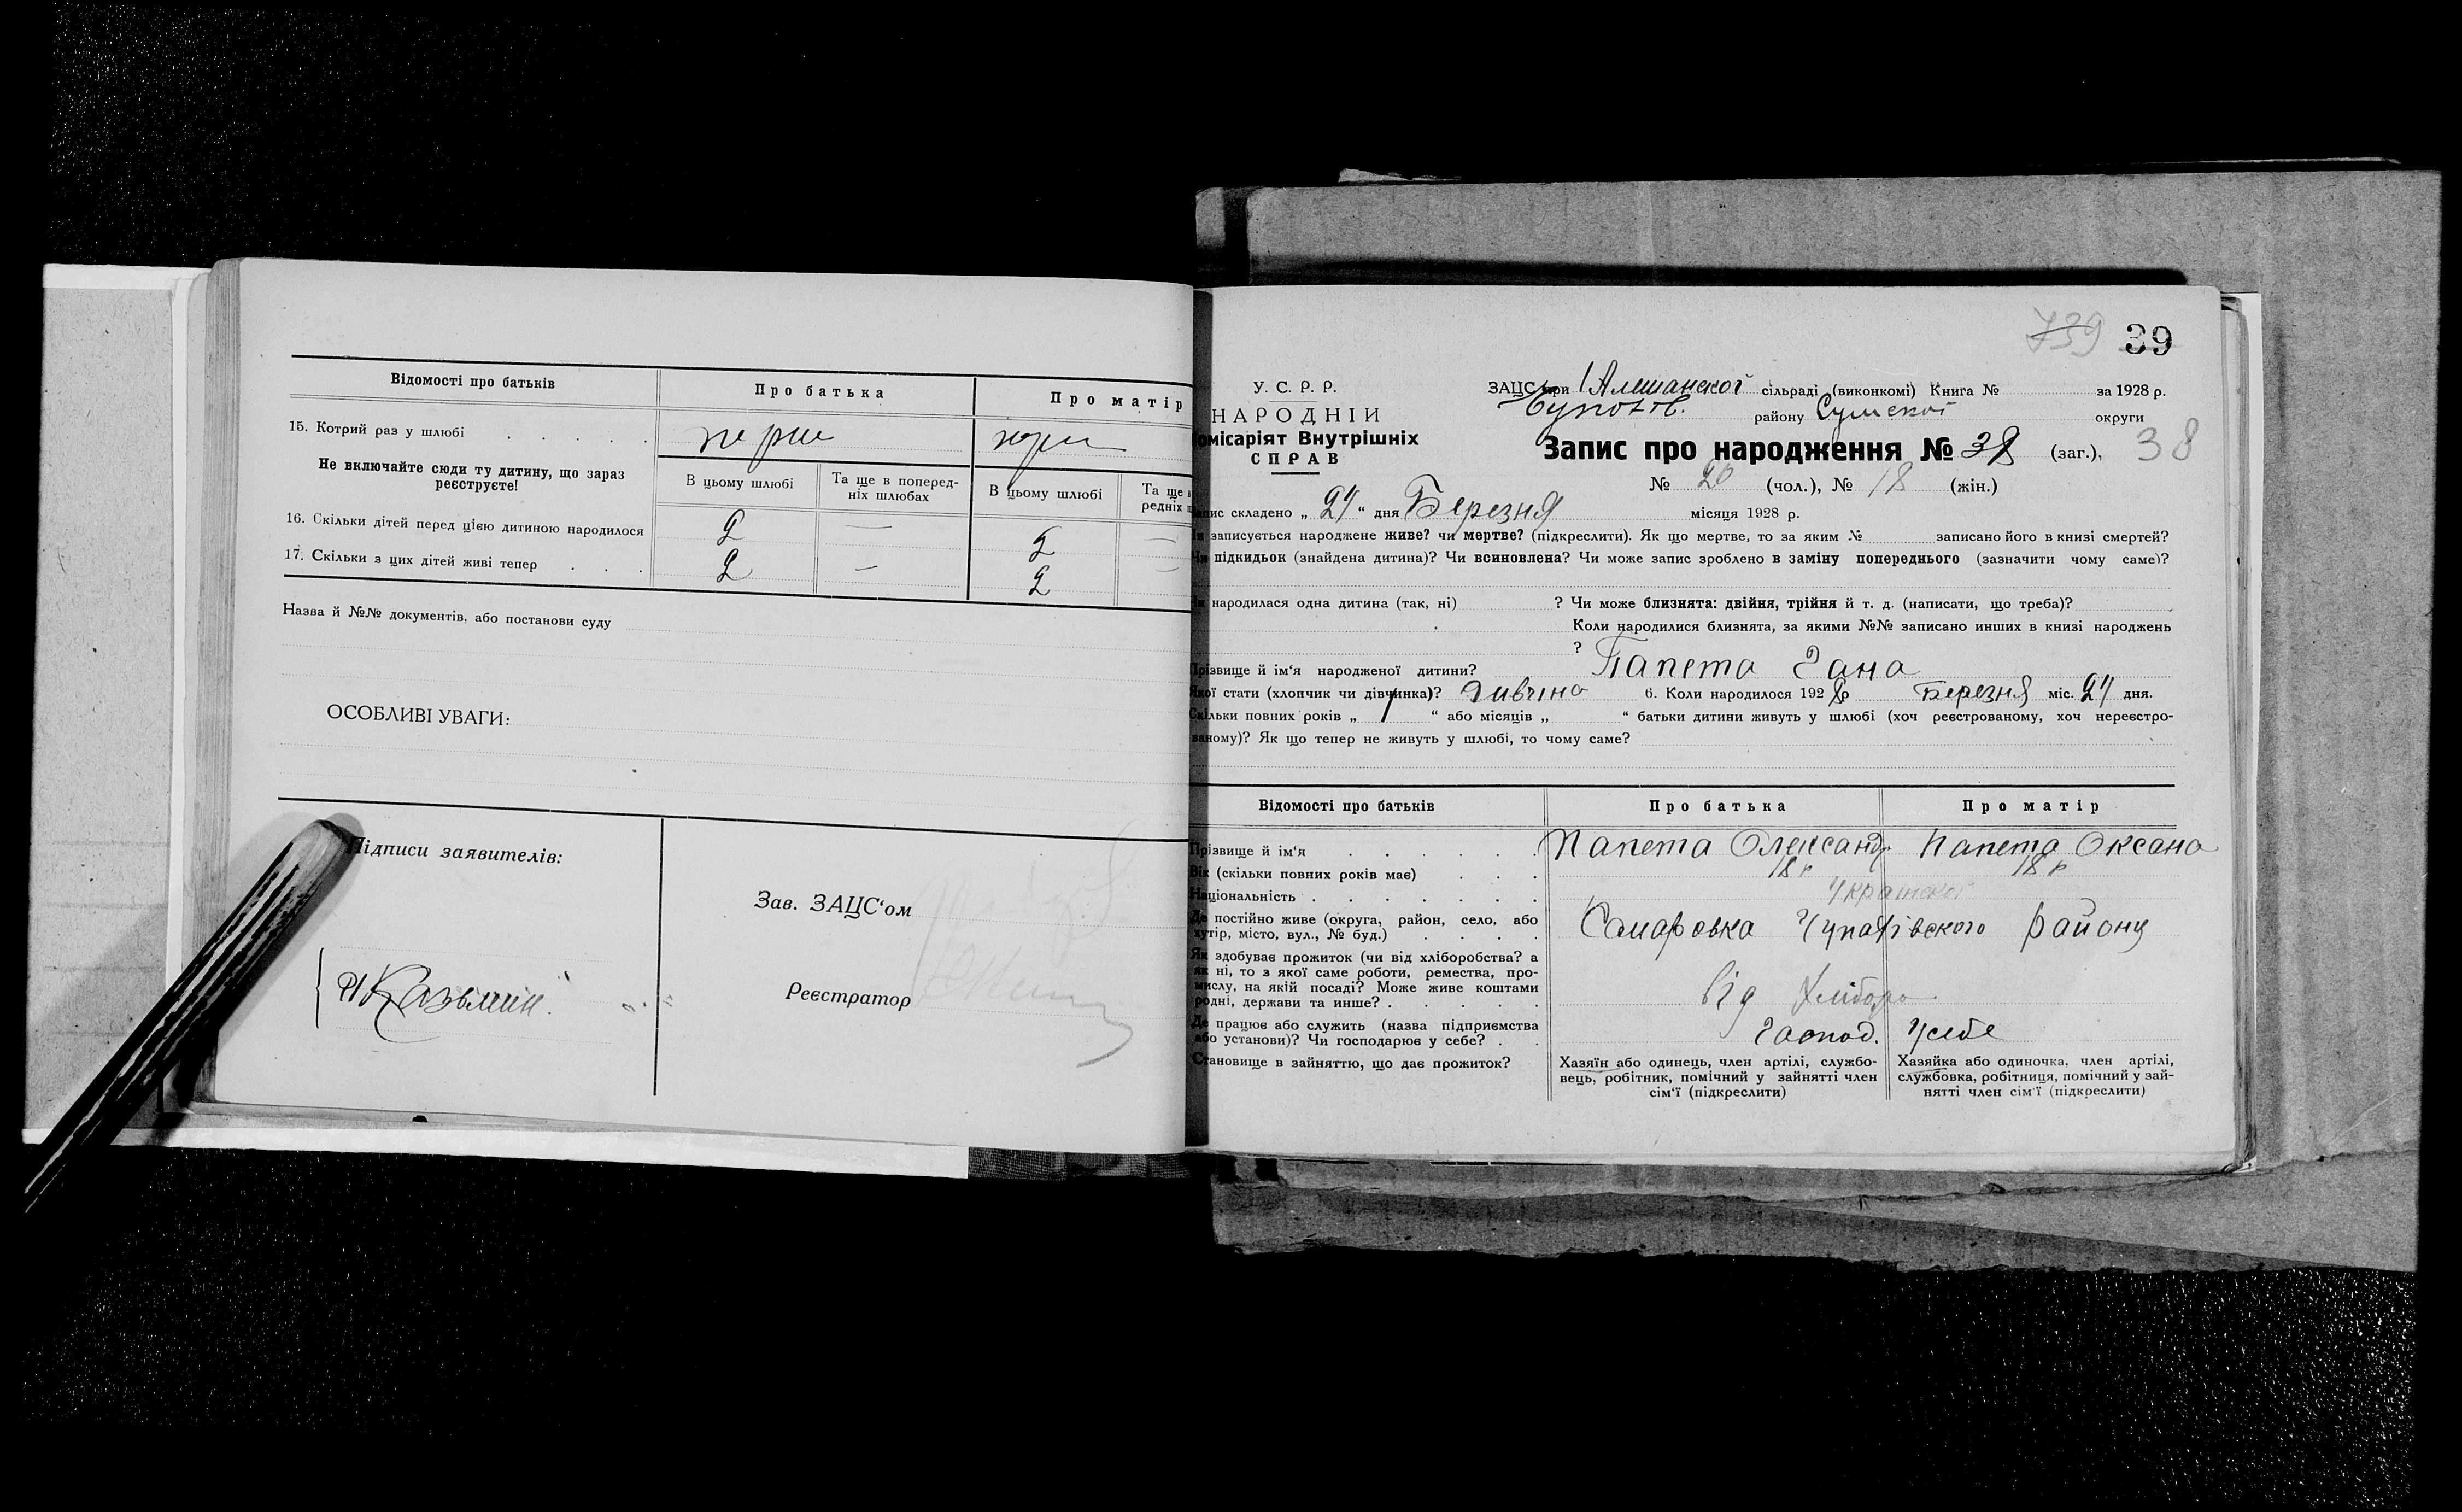 Відомості про батьків
Про батька
Про матір
15. Котрий раз у шлюбі
перш
перш
Не включайте сюди ту дитину, що зараз реєструєте!
В цьому шлюбі
Та ще в поперед-
ніх шлюбах
В цьому шлюбі
Та ще
редніх
16. Скільки дітей перед цією дитиною народилося
2 — 2 —
17. Скільки з цих дітей живі тепер
2 — 2 —
Назва й №№ документів, або постанови суду
ОСОБЛИВІ УВАГИ:
Підписи заявителів:
Зав. ЗАЦС'ом
Реєстратор
739 39
У. С. Р. Р.
НАРОДНІЙ
Комісаріят Внутрішніх
СПРАВ
ЗАЦС при сільраді (виконкомі) Книга № за 1928 р.
району Сумської округи
Запис про народження № 38 (заг.), 38
№ 20 (чол.), № 18 (жін.)
Запис складено „ 24 “ дня Березня місяця 1928 р.
Чи записується народжене живе? чи мертве? (підкреслити). Як що мертве, то за яким № записано його в книзі смертей?
Чи підкидьок (знайдена дитина)? Чи всиновлена? Чи може запис зроблено в заміну попереднього (зазначити чому саме)?
Чи народилася одна дитина (так, ні) ? Чи може близнята: двійня, трійня й т. д. (написати, що треба)?
Коли народилися близнята, за якими №№ записано инших в книзі народжень
?
Прізвище й ім'я народженої дитини? Папета Гана
Якої стати (хлопчик чи дівчинка)? Дивчина 6. Коли народилося 1928 р Березня міс. 24 дня.
Скільки повних років „ 1 “ або місяців „ “ батьки дитини живуть у шлюбі (хоч реєстрованому, хоч нереєстро-
ваному)? Як що тепер не живуть у шлюбі, то чому саме?
Відомості про батьків
Про батька
Про матір
Прізвище й ім'я
Папета Олександр
Папета Оксана
Вік (скільки повних років має)
18 р
18 р
Національність
Де постійно живе (округа, район, село, або
хутір, місто, вул., № буд.)
Самаровка району
Як здобуває прожиток (чи від хліборобства? а
як ні, то з якої саме роботи, ремества, про-
мислу, на якій посаді? Може живе коштами
родні, держави та инше?
Від Хлібор
Де працює або служить (назва підприємства
або установи)? Чи господарює у себе?
Господ. Усебе
Становище в зайняттю, що дає прожиток?
Хазяїн або одинець, член артілі, службо-
вець, робітник, помічний у зайнятті член
сім'ї (підкреслити)
Хазяйка або одиночка, член артілі,
службовка, робітниця, помічний у зай-
нятті член сім'ї (підкреслити)